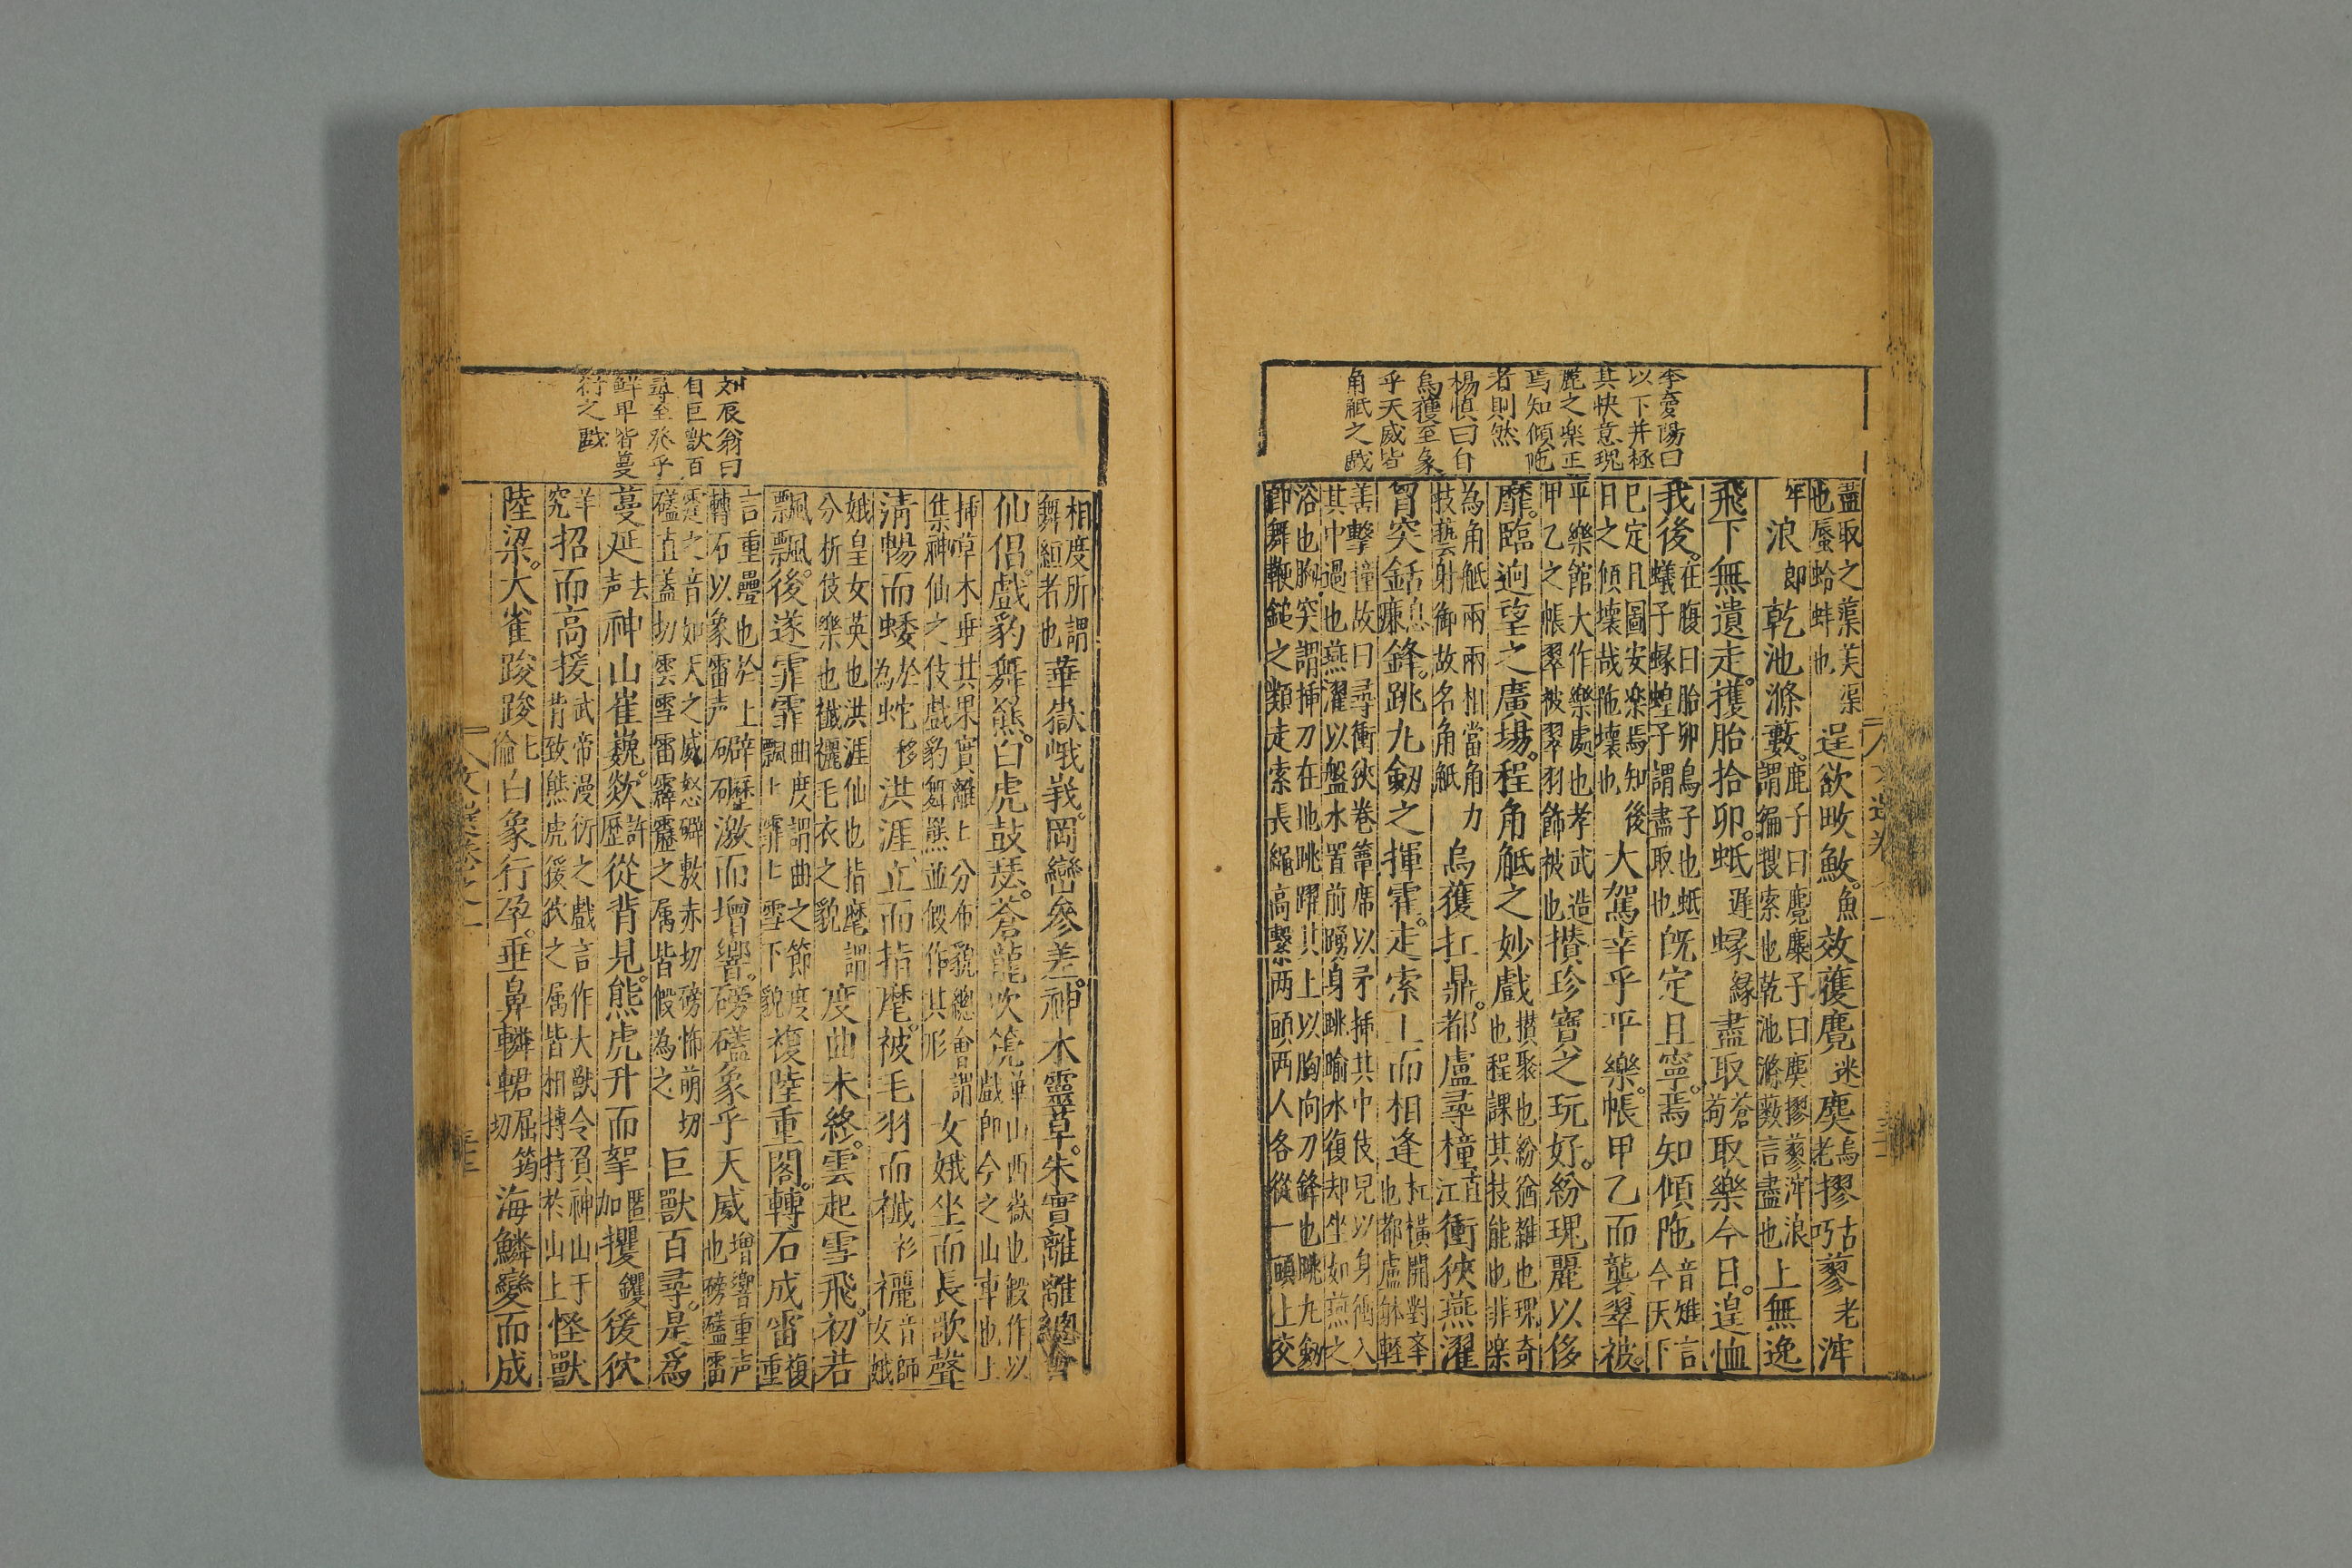 李憂陽曰
以下并極
其快意現
麗之楽正
焉知傾陁
者則然
楊慎曰自
烏獲至象
乎天威皆
角觝之戯
盡取之蕖芙渠
也蜃蛤蚌也
逞欲畋䱷魚效獲麑迷麌烏老摎古巧蓼老浶
牢浪郎乾池滌藪鹿子曰麑麋子曰麌摎蓼浶浪
謂徧搜索也乾池滌薮言盡也
上無逸
飛下無遺走。攫胎拾卵。蚳遲蝝緣盡取蒼苟取樂今日。遑恤
我後。在腹曰胎卵鳥子也蚳
蟻子蝝蝗子謂盡取也
既定且寧。焉知傾陁音雉言
今天下
已定且圖安楽焉知後
日之傾壊哉陁壊也
大駕幸乎平樂。帳甲乙而襲翠被。
平樂館大作樂處也孝武造
甲乙之帳翠被翠羽飾被也
攅珍寶之玩好。紛瑰麗以侈
靡。臨迥望之廣場。程角觝之妙戲攅聚也紛猶雑也瑰奇
也程課其技能也非楽
為角觝兩兩相當角力
技藝射御故名角觝
烏獲扛鼎。都盧尋橦直江衝狹燕濯
胷突銛息廉鋒。跳九劒之揮霍。走索上而相逢扛橫開對举
也都盧躰軽
善擊橦故曰尋衝狹卷簟席以矛揷其中伎兒以身衝入
其中過也燕濯以盤水置前踴身跳踰水復却坐如燕之
浴也胸突謂揷刀在地跳躍其上以胸向刀鋒也眺九劒
即舞鞭鎚之類走索長繩高繋两頭两人各從一頭上交
相度所謂
舞絙者也
華嶽峨峩。岡巒參差。神木靈草。朱實離離總會
仙侣。戲豹舞羆。白虎鼓瑟。蒼龍吹篪華山西嶽也假作以
戲即今之山車也上
揷草木垂其果實離上分布貌總會謂
集神仙之伎戲豹舞羆並假作其形
女娥坐而長歌聲
淸暢而蜲於為蛇移洪涯立而指麾。被毛羽而襳衫襹音師
女娥
娥皇女英也洪涯仙也指麾謂
分析伎樂也襳襹毛衣之貌
度曲未終。雲起雪飛。初若
飄飄。後遂霏霏曲度謂曲之節度
飄上霏上雪下貌
複陸重閣。轉石成雷複
重
言重疊也於上辟歷
轉石以象雷声
礔礰激而增響。磅磕象乎天威增響重声
也磅磕雷
霆之音如天之威怒礔敷赤切磅怖萌切
磕苦蓋切雲雪雷霹靂之属皆假為之
巨獸百尋。是爲
蔓延去声神山崔巍。欻許歷從背見。熊虎升而挐匿加攫鑊猨狖
羊究招而高援武帝漫衍之戲言作大獸令負神山于
背致熊虎猨狖之属皆相摶持於山上
怪獸
陸梁。大雀踆踆七倫白象行孕。垂鼻轔輑屈筠切海鱗變而成
刘辰翁曰
自巨獣百
尋至癸乎
鲜卑皆蔓
衍之戯